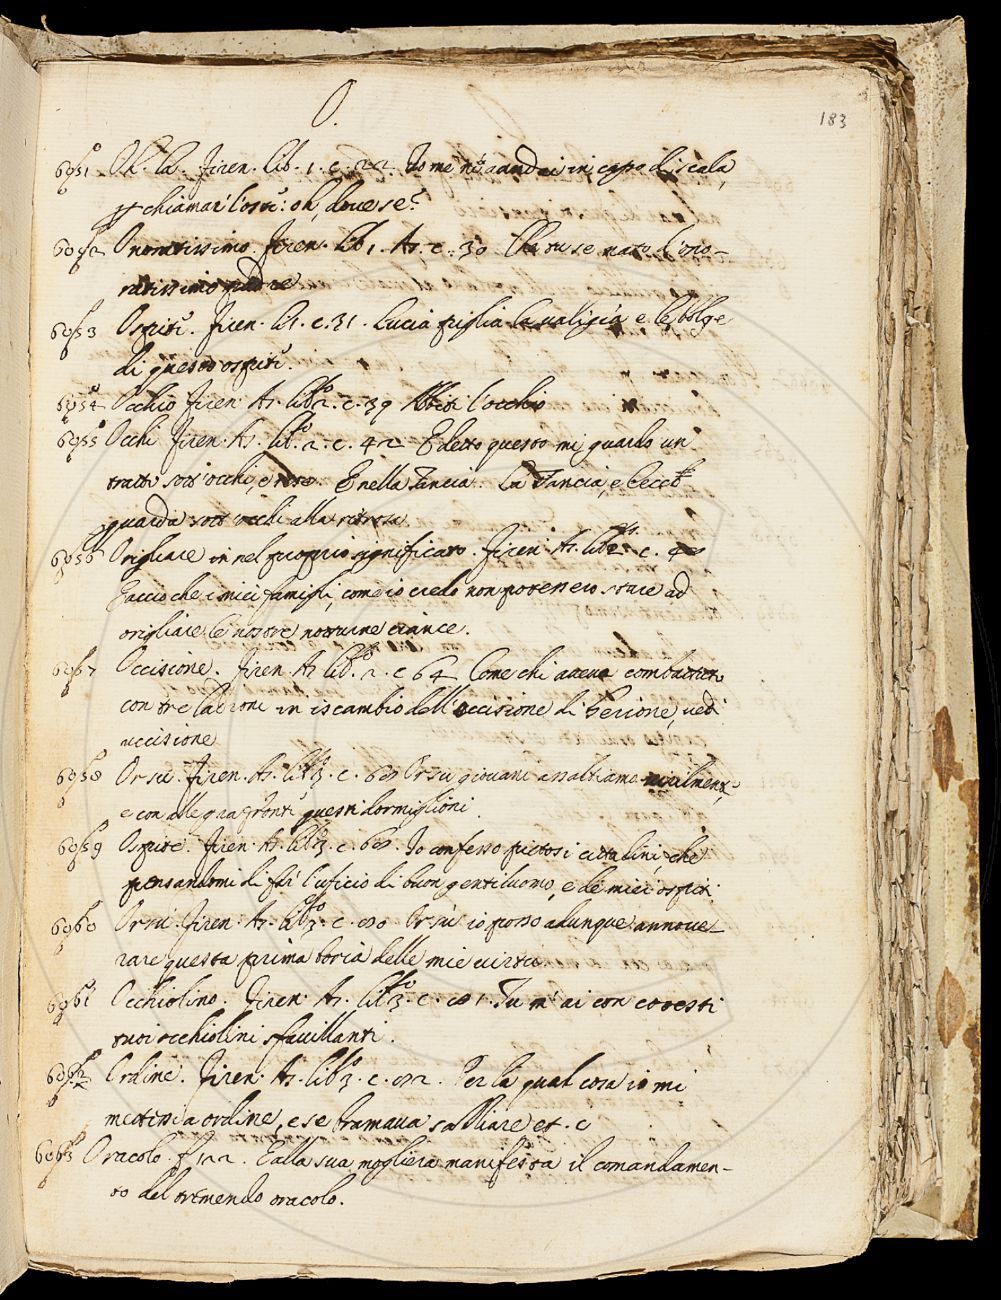 O.
183
6051 Oh. la. Firen. lib. 1. c. 22. Io me n'andai in capo di scala,
chiamar l'oste: oh, dove se?
6052 Onoratissimo. Firen. lib 1. As. c. 30 Che tu se nato d'ono-
ratissimo padre
6053 Ospite. Firen. li 1. c. 31. Lucia piglia la valigia e le bolge
di questo ospite.
6054 Occhio Firen. As. lib.o 2. c. 39 Abbiti l'occhio
6055 Occhi Firen. As. lib.o 2. c. 42 E detto questo mi guardo un
tratto sott'occhi, e rise. E nella Tancia. La Tancia, e
guarda sott occhi alla ritrosa
6056 Origliare in nel proprio significato. Firen. As. lib. c. 4
Eaccio che i miei famigli, come io credo non potessero stare ad
origliare le nostre notturne ciance.
6057 Occisione. Firen. As lib.o 2. c 64 Come chi aveva combattuto
con tre ladroni in iscambio dell'occisione di Gerione, vedi
uccisione
6058 Orsu. Firen. As. lib.o 3. c. 68 Orsu giovani assaltiamo virilmente,
e con allegra fronte questi dormiglioni.
6059 Ospite. Firen. As. lib.o 3. c. 68. Io confesso pietosi cittadini, che
pensandomi di far l'uficio di buon gentiluomo, e de miei ospiti.
6060 Orsu. Firen. As. lib.o 3. c. 80 Orsù io posso adunque annove-
rare questa prima boria delle mie virtu
6061 Occhiolino. Firen. As. lib.o 3. c. 81. Tu m'ai con cotesti
tuoi occhiolini sfavillanti.
6062 Ordine. Firen. As. lib.o 3. c. 82. Per la qual cosa io mi
mettessi a ordine, e se bramava sa et. c
6063 Oracolo. f 122. Ealla sua mogliera manifesta il comandamen-
to del tremendo oracolo.